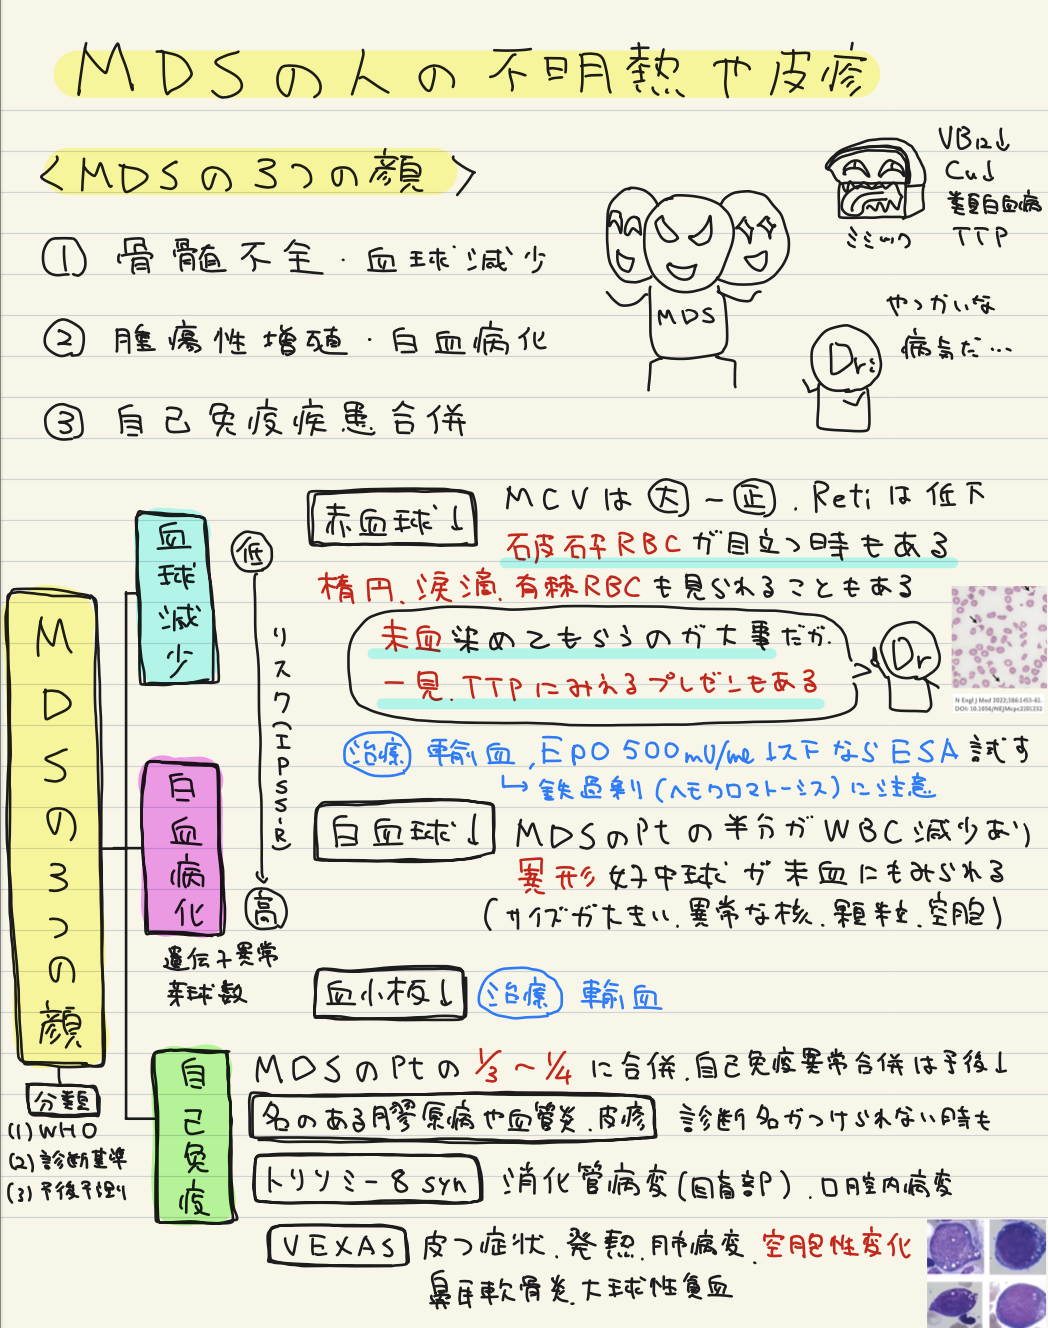 MDSの人の不明熱や皮疹
<MDSの3つの顔>
① 骨髄不全・血球減少
② 腫瘍性増殖・白血病化
③ 自己免疫疾患合併
VB12↓
Cu↓
類白血病
TTP
ミミック
MDS
やっかいな
病気だ…
Dr
赤血球↓
MCVは大〜正.Retiは低下
破砕RBCが目立つ時もある
楕円.涙滴.有棘RBCも見られることもある
末血染めてもらうのが大事だが.
一見.TTPにみえるプレゼンもある
Dr
N Engl J Med 2022;386:1453-61.
DOI: 10.1056/NEJMcpc2201232
治療 輸血,EPO 500mU/ml以下ならESA試す
↳鉄過剰(ヘモクロマトーシス)に注意
白血球↓
MDSのPtの半分がWBC減少あり
異形好中球が末血にもみられる
(サイズが大きい.異常な核.顆粒.空胞)
血小板↓
治療 輸血
MDSの3つの顔
分類
(1) WHO
(2) 診断基準
(3) 予後予測
血球減少
白血病化
遺伝子異常
芽球数
低
リスク(IPSS-R)
高
自己免疫
MDSのPtの1/3〜1/4に合併.自己免疫異常合併は予後↓
名のある膠原病や血管炎.皮疹
診断名がつけられない時も
トリソミー8 syn
消化管病変(回盲部).口腔内病変
VEXAS
皮フ症状.発熱.肺病変.空胞性変化
鼻耳軟骨炎.大球性貧血